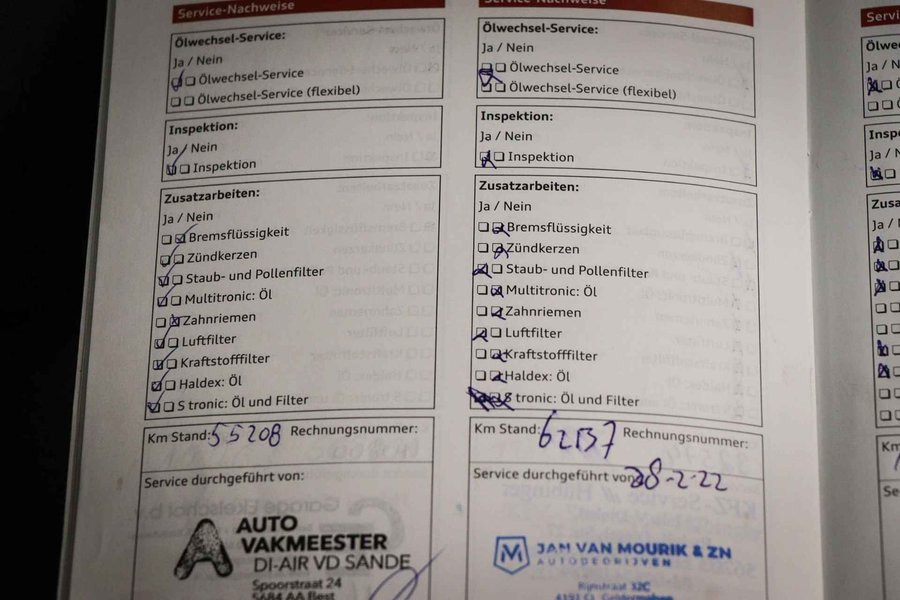 Service-Nachweise
Ölwechsel-Service:
Ja / Nein
Ölwechsel-Service
Ölwechsel-Service (flexibel)
Inspektion:
Ja / Nein
Inspektion
Zusatzarbeiten:
Ja / Nein
Bremsflüssigkeit
Zündkerzen
Staub- und Pollenfilter
Multitronic: Öl
Zahnriemen
Luftfilter
Kraftstofffilter
Haldex: Öl
S tronic: Öl und Filter
Km Stand: 55208 Rechnungsnummer:
Service durchgeführt von:
AUTO
VAKMEESTER
DI-AIR VD SANDE
Spoorstraat 24
5684 AA Best
Service-Nachweise
Ölwechsel-Service:
Ja / Nein
Ölwechsel-Service
Ölwechsel-Service (flexibel)
Inspektion:
Ja / Nein
Inspektion
Zusatzarbeiten:
Ja / Nein
Bremsflüssigkeit
Zündkerzen
Staub- und Pollenfilter
Multitronic: Öl
Zahnriemen
Luftfilter
Kraftstofffilter
Haldex: Öl
S tronic: Öl und Filter
Km Stand: 62137 Rechnungsnummer:
Service durchgeführt von 28-2-22
JAM VAN MOURIK & ZN
AUTOBEDRIJVEN
Rijnstraat 32C
Ja / N
Ja / N
Ja /